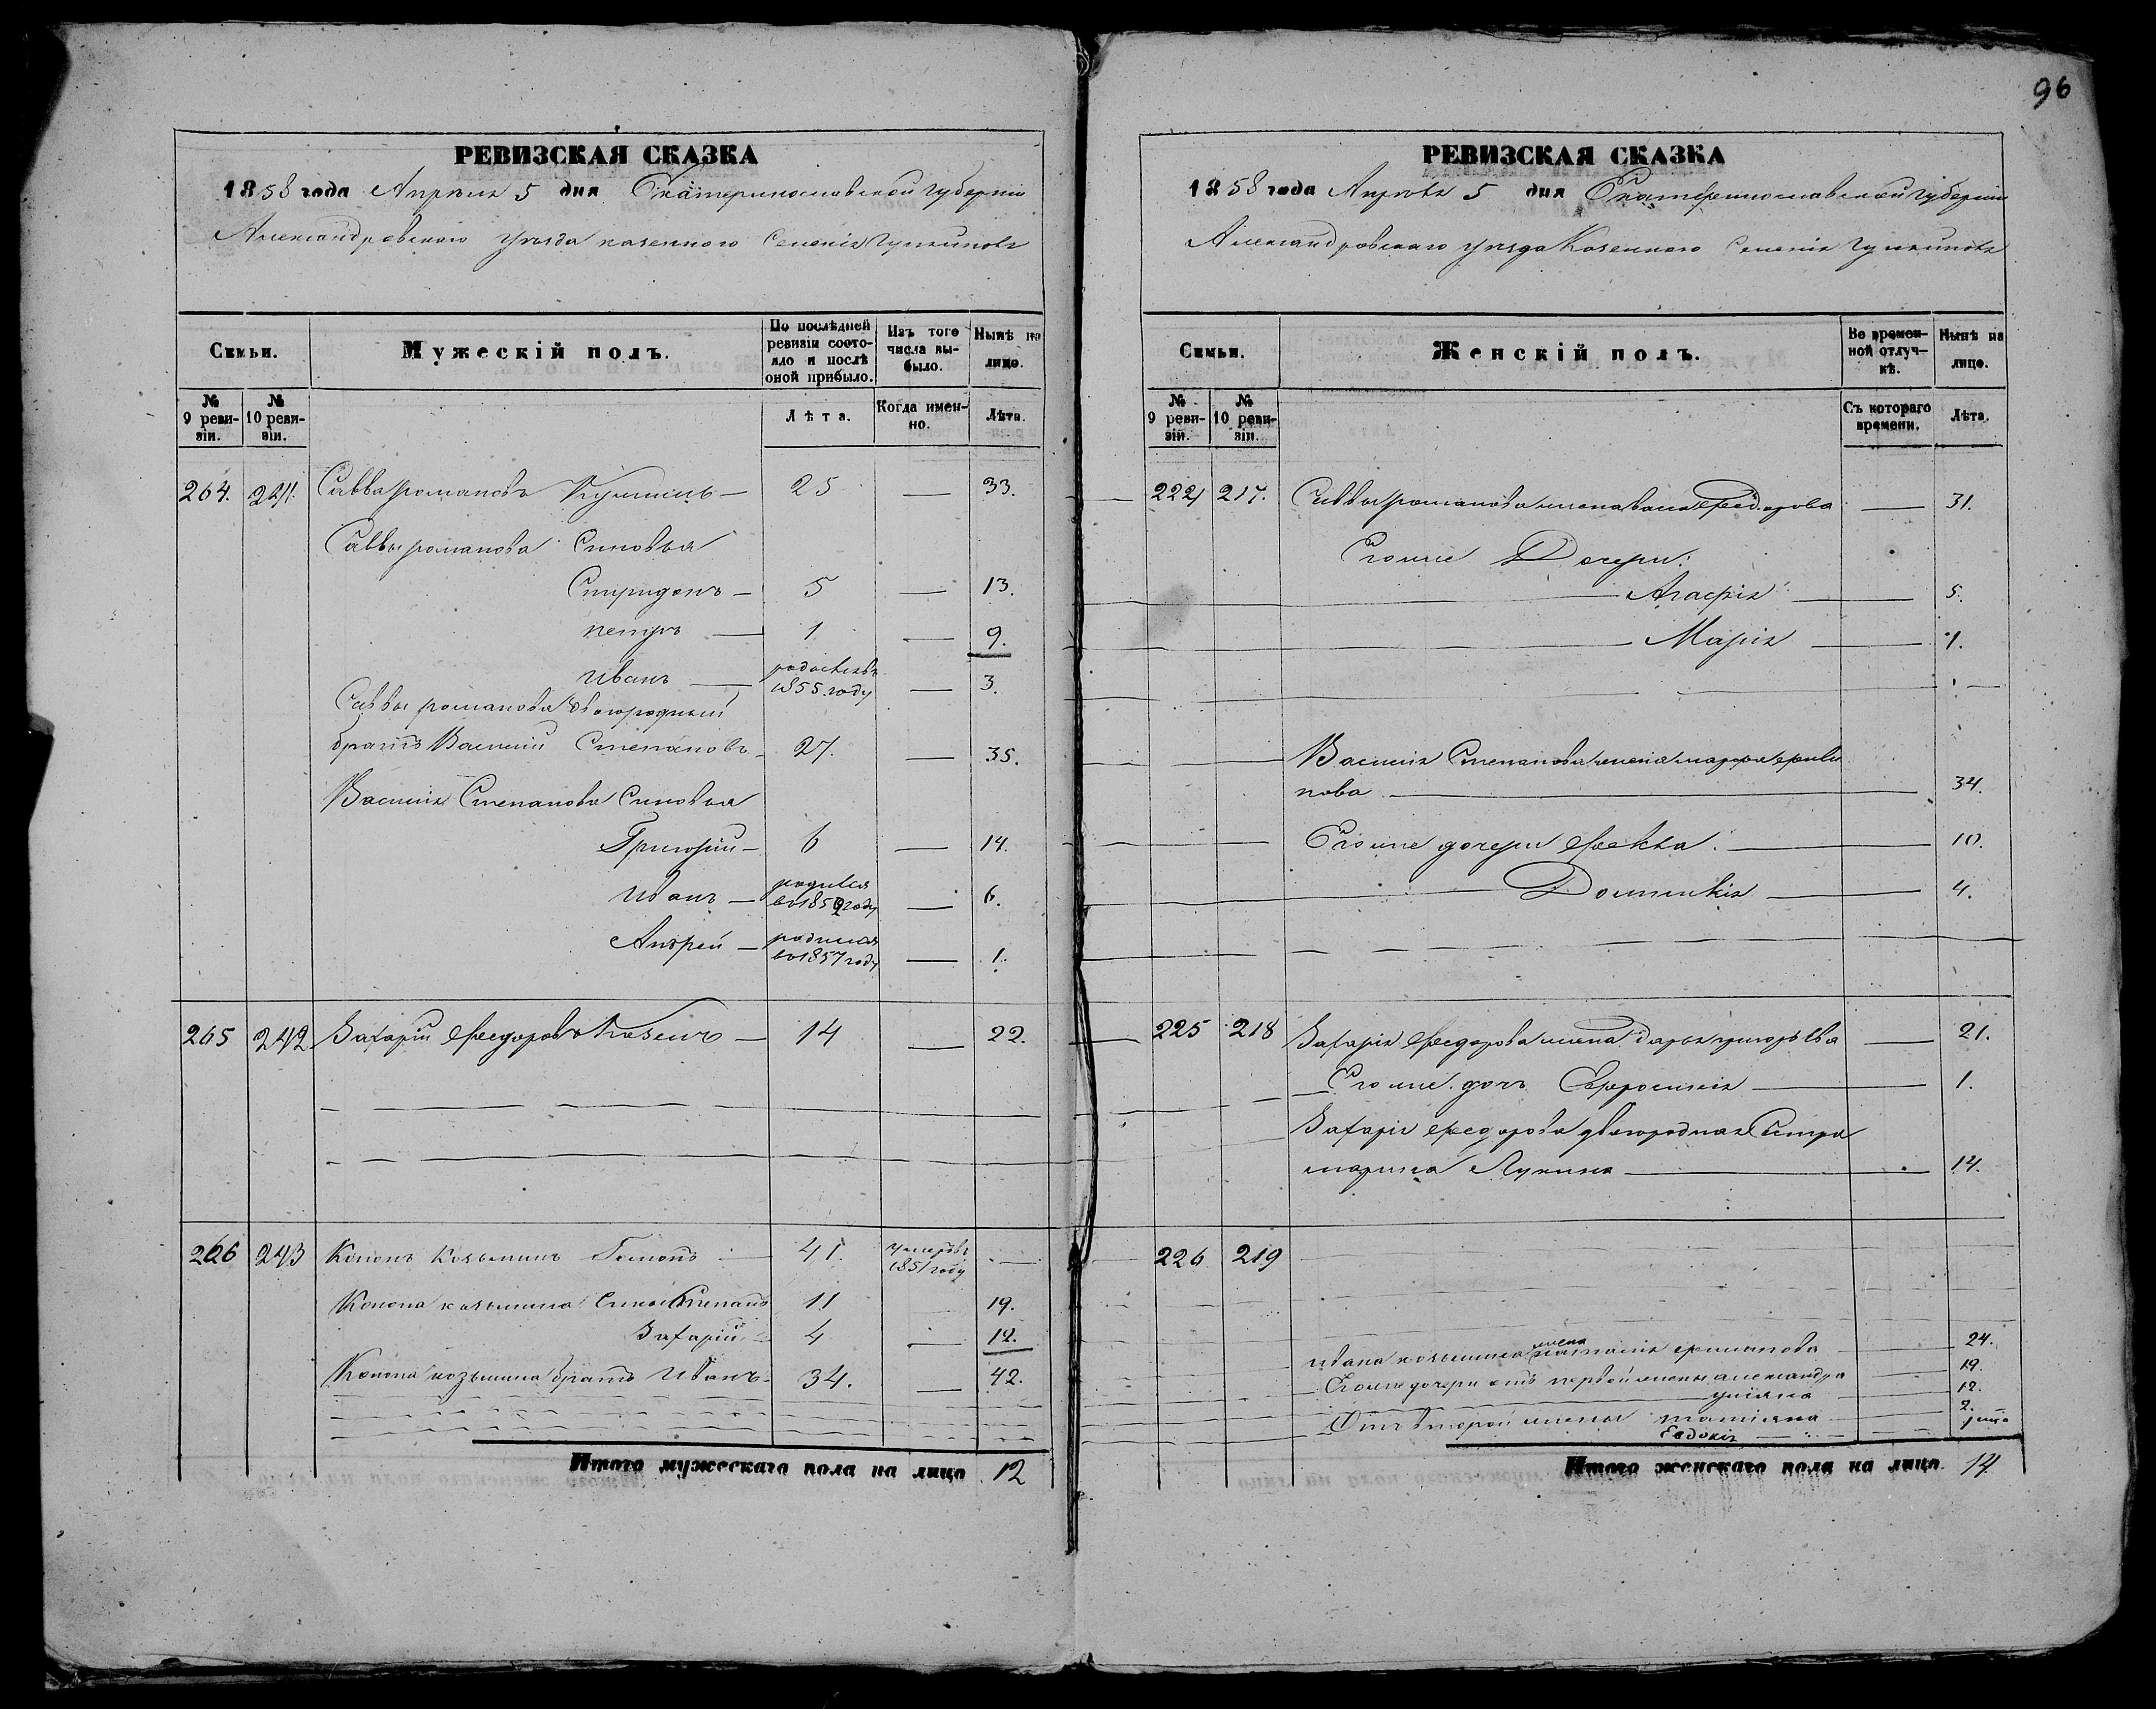 96
РЕВИЗСКАЯ СКАЗКА
1858 года Апреля 5 дня Екатеринославской губернии
Александровского уезда казенного селения
Семьи.
Мужескій полъ.
По послѣдней ревизіи состояло и послѣ оной прибыло.
Изъ того числа выбыло.
Нынѣ на лицо.
№ 9 ревизіи.
№ 10 ревизіи.
Лѣта.
Когда именно.
Лѣта.
264. 241. Савва романовъ 25 — 33.
Саввы романова Синовья
Спиридонъ — 5 — 13.
петръ — 1 — 9.
иванъ — родился въ 1855 году — 3.
Саввы романова двоюродный
братъ Василий Степановъ 27. — 35.
Василия Степанова Синовья
Григорий — 6 — 14.
Иванъ — родился во 1852 году — 6.
Андрей — родился во 1857 году — 1.
265 242 Захарій федоровъ — 14 — 22.
266 243 Кононъ Козьминъ 41. умеръ въ 1851 году —
Конона козьмина Сины Степанъ 11 19.
Захарій 4 — 12.
Конона козьмина братъ Иванъ 34. — 42.
Итого мужескаго пола на лицо 12
РЕВИЗСКАЯ СКАЗКА
1858 года Апреля 5 дня Екатеринославской губернии
Александровского уезда Казенного Селения
Семьи.
Женскій полъ.
Во временной отлучкѣ.
Нынѣ на лицо.
№ 9 ревизіи.
№ 10 ревизіи.
Съ котораго времени.
Лѣта.
224 217. Саввы романова жена Федорова — 31.
Егоже Дочери:
Агафія — 5.
Марія — 1.
Василия Степанова жена марфа
пова — 34.
Егоже дочери Фекла — 10.
Домникія — 4.
225 218 Захарія федорова жена дарья григорьева — 21.
Егоже дочь Евфросинія — 1.
Захарія федорова двоюродная Сестра
марина Лукина — 14.
226 219
ивана козьмина жена наталія — 24.
Егоже дочери отъ первой жены александра — 19.
уліяна — 12.
Отъ второй жены татіяна — 2.
Евдокія —
Итого женскаго пола на лицо 14